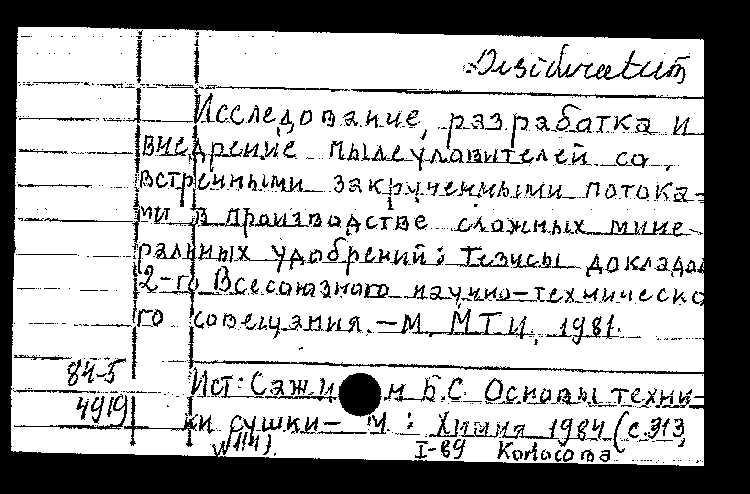 Desideratum
Исследование, разработка и
внедрение пылеуловителей со
встречными закрученными потока-
ми в производстве сложных мине-
ральных удобрений: Тезисы докладов
2-го Всесоюзного научно-техническо
го совещания. – М. МТИ, 1981.
84-5
4919
Ист: Сажин Б.С. Основы техни-
ки сушки – М: Химия 1984 (с.313,
N114).
I-89